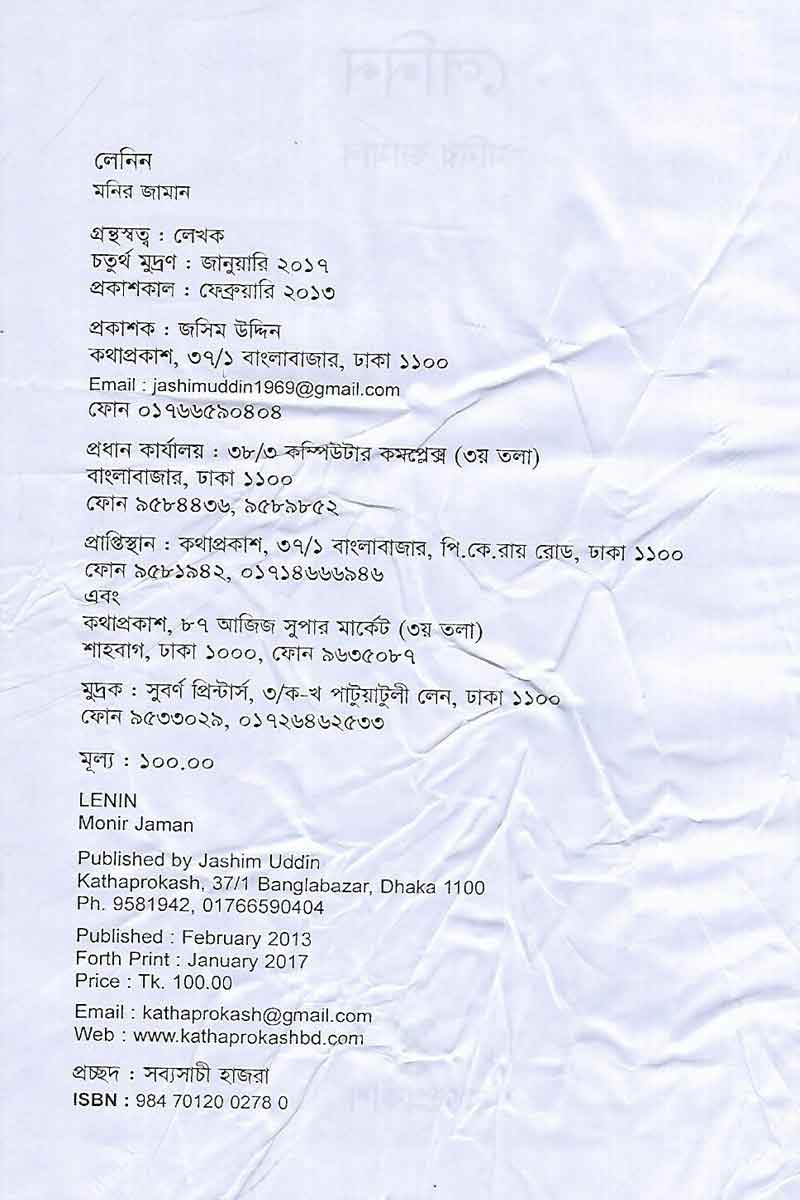 লেনিন
মনির জামান
গ্রন্থস্বত্ব : লেখক
চতুর্থ মুদ্রণ : জানুয়ারি ২০১৭
প্রকাশকাল : ফেব্রুয়ারি ২০১৩
প্রকাশক : জসিম উদ্দিন
কথাপ্রকাশ, ৩৭/১ বাংলাবাজার, ঢাকা ১১০০
Email : jashimuddin1969@gmail.com
ফোন ০১৭৬৬৫৯০৪০৪
প্রধান কার্যালয় : ৩৮/৩ কম্পিউটার কমপ্লেক্স (৩য় তলা)
বাংলাবাজার, ঢাকা ১১০০
ফোন ৯৫৮৪৪৩৬, ৯৫৮৯৮৫২
প্রাপ্তিস্থান : কথাপ্রকাশ, ৩৭/১ বাংলাবাজার, পি.কে.রায় রোড, ঢাকা ১১০০
ফোন ৯৫৮১৯৪২, ০১৭১৪৬৬৬৯৪৬
এবং
কথাপ্রকাশ, ৮৭ আজিজ সুপার মার্কেট (৩য় তলা)
শাহবাগ, ঢাকা ১০০০, ফোন ৯৬৩৫০৮৭
মুদ্রক : সুবর্ণ প্রিন্টার্স, ৩/ক-খ পাটুয়াটুলী লেন, ঢাকা ১১০০
ফোন ৯৫৩৩০২৯, ০১৭২৬৪৬২৫৩৩
মূল্য : ১০০.০০
LENIN
Monir Jaman
Published by Jashim Uddin
Kathaprokash, 37/1 Banglabazar, Dhaka 1100
Ph. 9581942, 01766590404
Published : February 2013
Forth Print : January 2017
Price : Tk. 100.00
Email : kathaprokash@gmail.com
Web : www.kathaprokashbd.com
প্রচ্ছদ : সব্যসাচী হাজরা
ISBN : 984 70120 0278 0